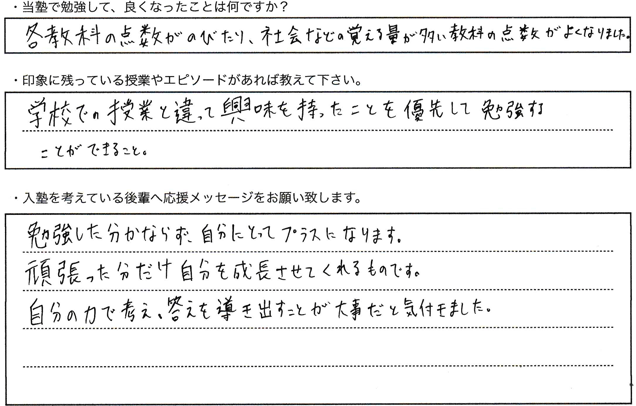 ・当塾で勉強して、良くなったことは何ですか？
各教科の点数がのびたり、社会などの覚える量が多い教科の点数がよくなりました。
・印象に残っている授業やエピソードがあれば教えて下さい。
学校での授業と違って興味を持ったことを優先して勉強する
ことができること。
・入塾を考えている後輩へ応援メッセージをお願い致します。
勉強した分かならず、自分にとってプラスになります。
頑張った分だけ自分を成長させてくれるものです。
自分の力で考え、答えを導き出すことが大事だと気付きました。